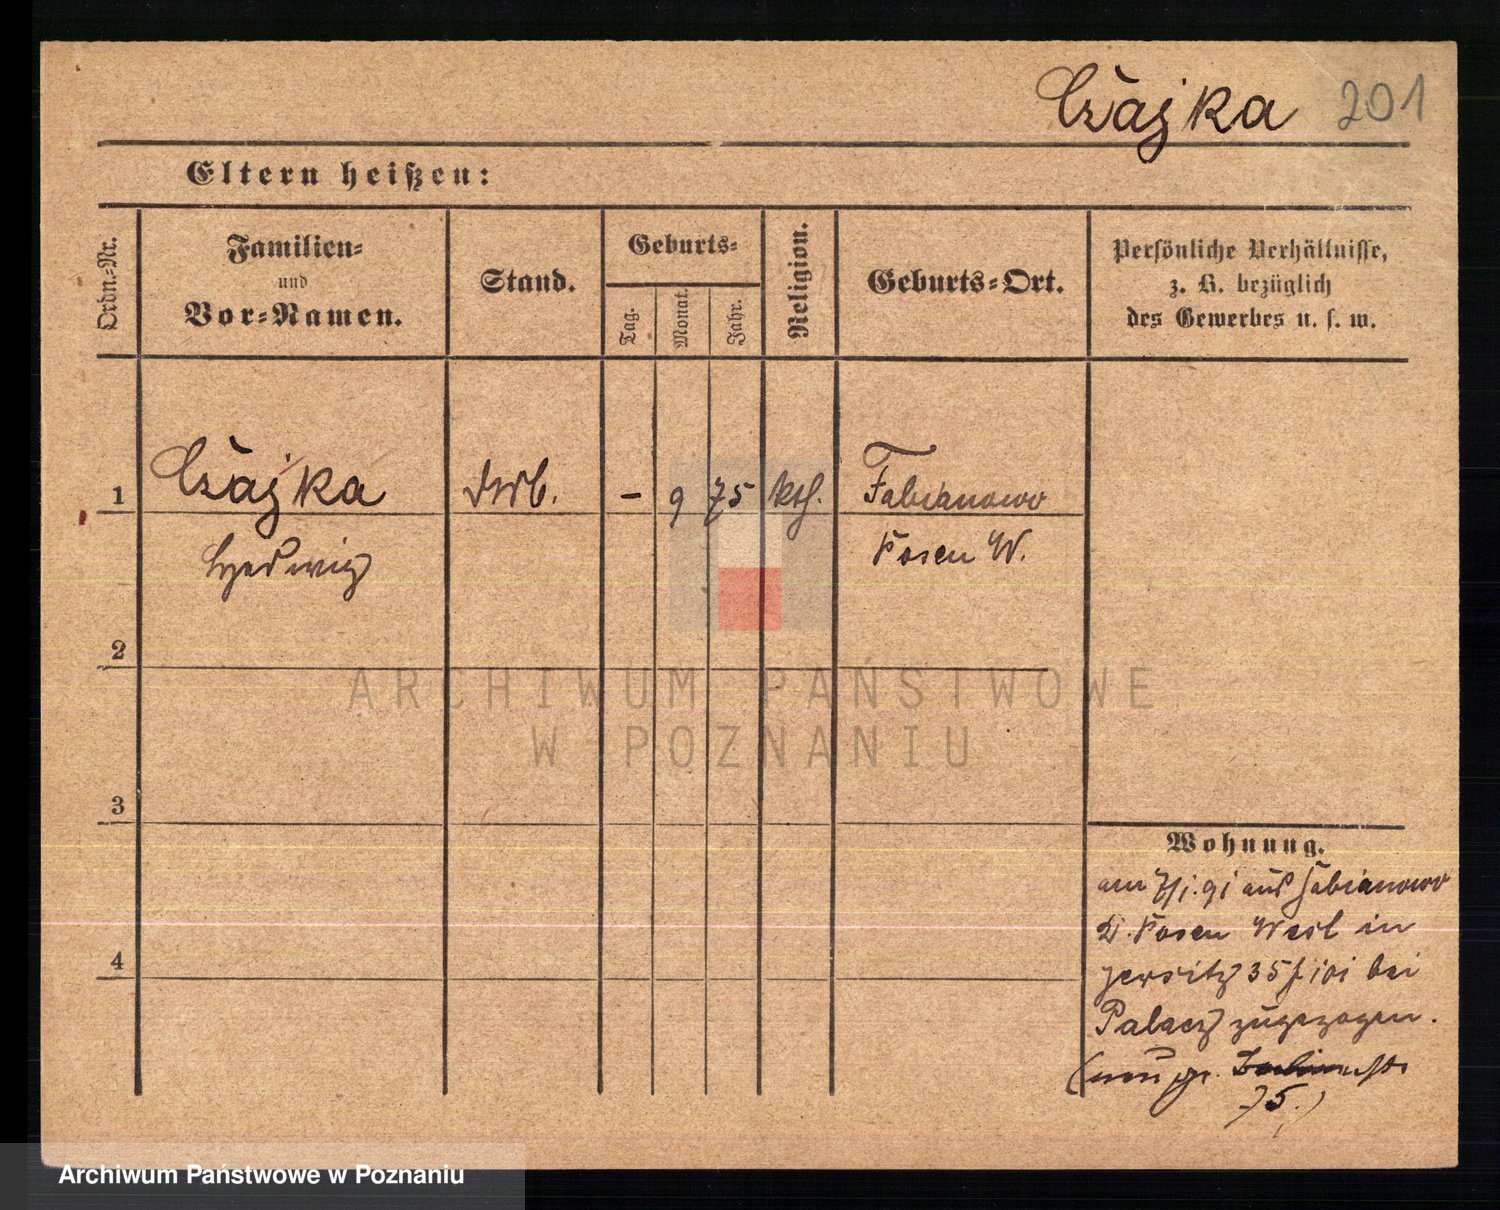 Czajka 201
Eltern heißen:
Ordn.-Nr.
Familien-
und
Vor-Namen.
Stand.
Geburts-
Tag.
Monat.
Jahr.
Religion.
Geburts-Ort.
Persönliche Verhältnisse,
z. B. bezüglich
des Gewerbes u. s. w.
1 Czajka - 9 75 kth. Fabianowo
Hedwig Posen W.
2
3
4
Wohnung.
am 7/1. 91 aus Fabianowo
D. Posen West in
Jersitz 35 bei
Palacz zugezogen.
75.)
ARCHIWUM PAŃSTWOWE
W POZNANIU
Archiwum Państwowe w Poznaniu